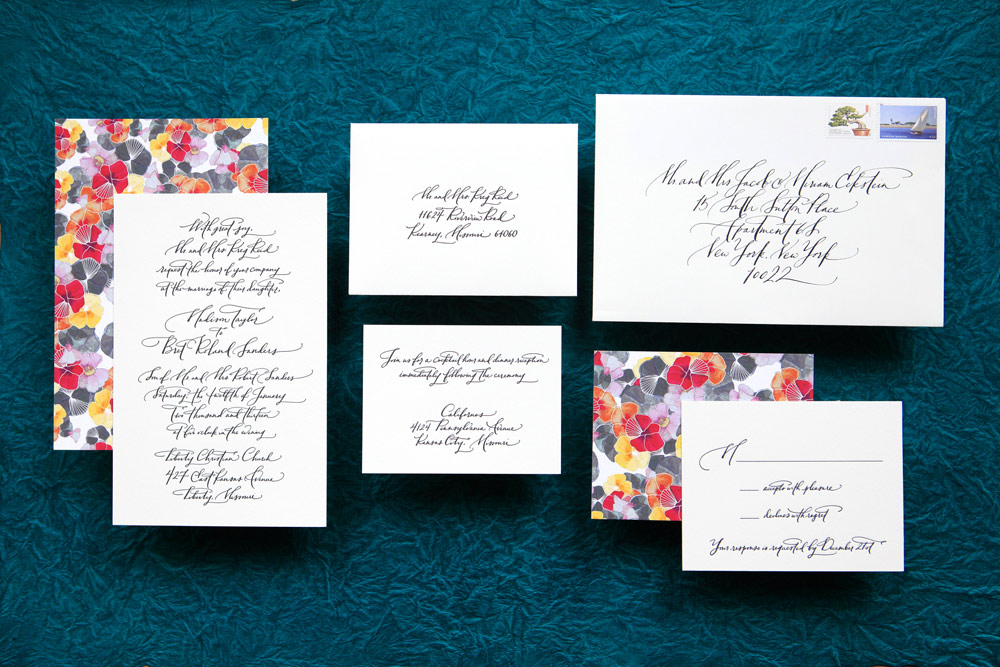 With great joy,
Mr and Mrs
request the honor of your company
at the marriage of their daughter,
Madison Taylor
to
Bret Roland Sanders
Son of Mr and Mrs Robert Sanders
Saturday, the twelfth of January
two thousand and thirteen
at five o'clock in the evening
Liberty Christian Church
427 East Kansas Avenue
Liberty, Missouri
Mr and Mrs
11624 Riverview Road
Kearney, Missouri 64060
Join us for a cocktail hour and dinner reception
immediately following the ceremony
Californos
4124 Pennsylvania Avenue
Kansas City, Missouri
Mr and Mrs Jacob & Miriam Eckstein
15 South Sutton Place
Apartment 6S
New York, New York
10022
M
accepts with pleasure
declines with regret
Your response is requested by December 21st